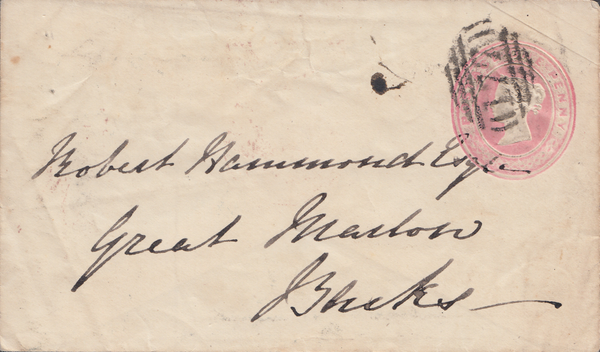 Robert Hammond Esqr.
Great Marlow
Bucks
PENNY